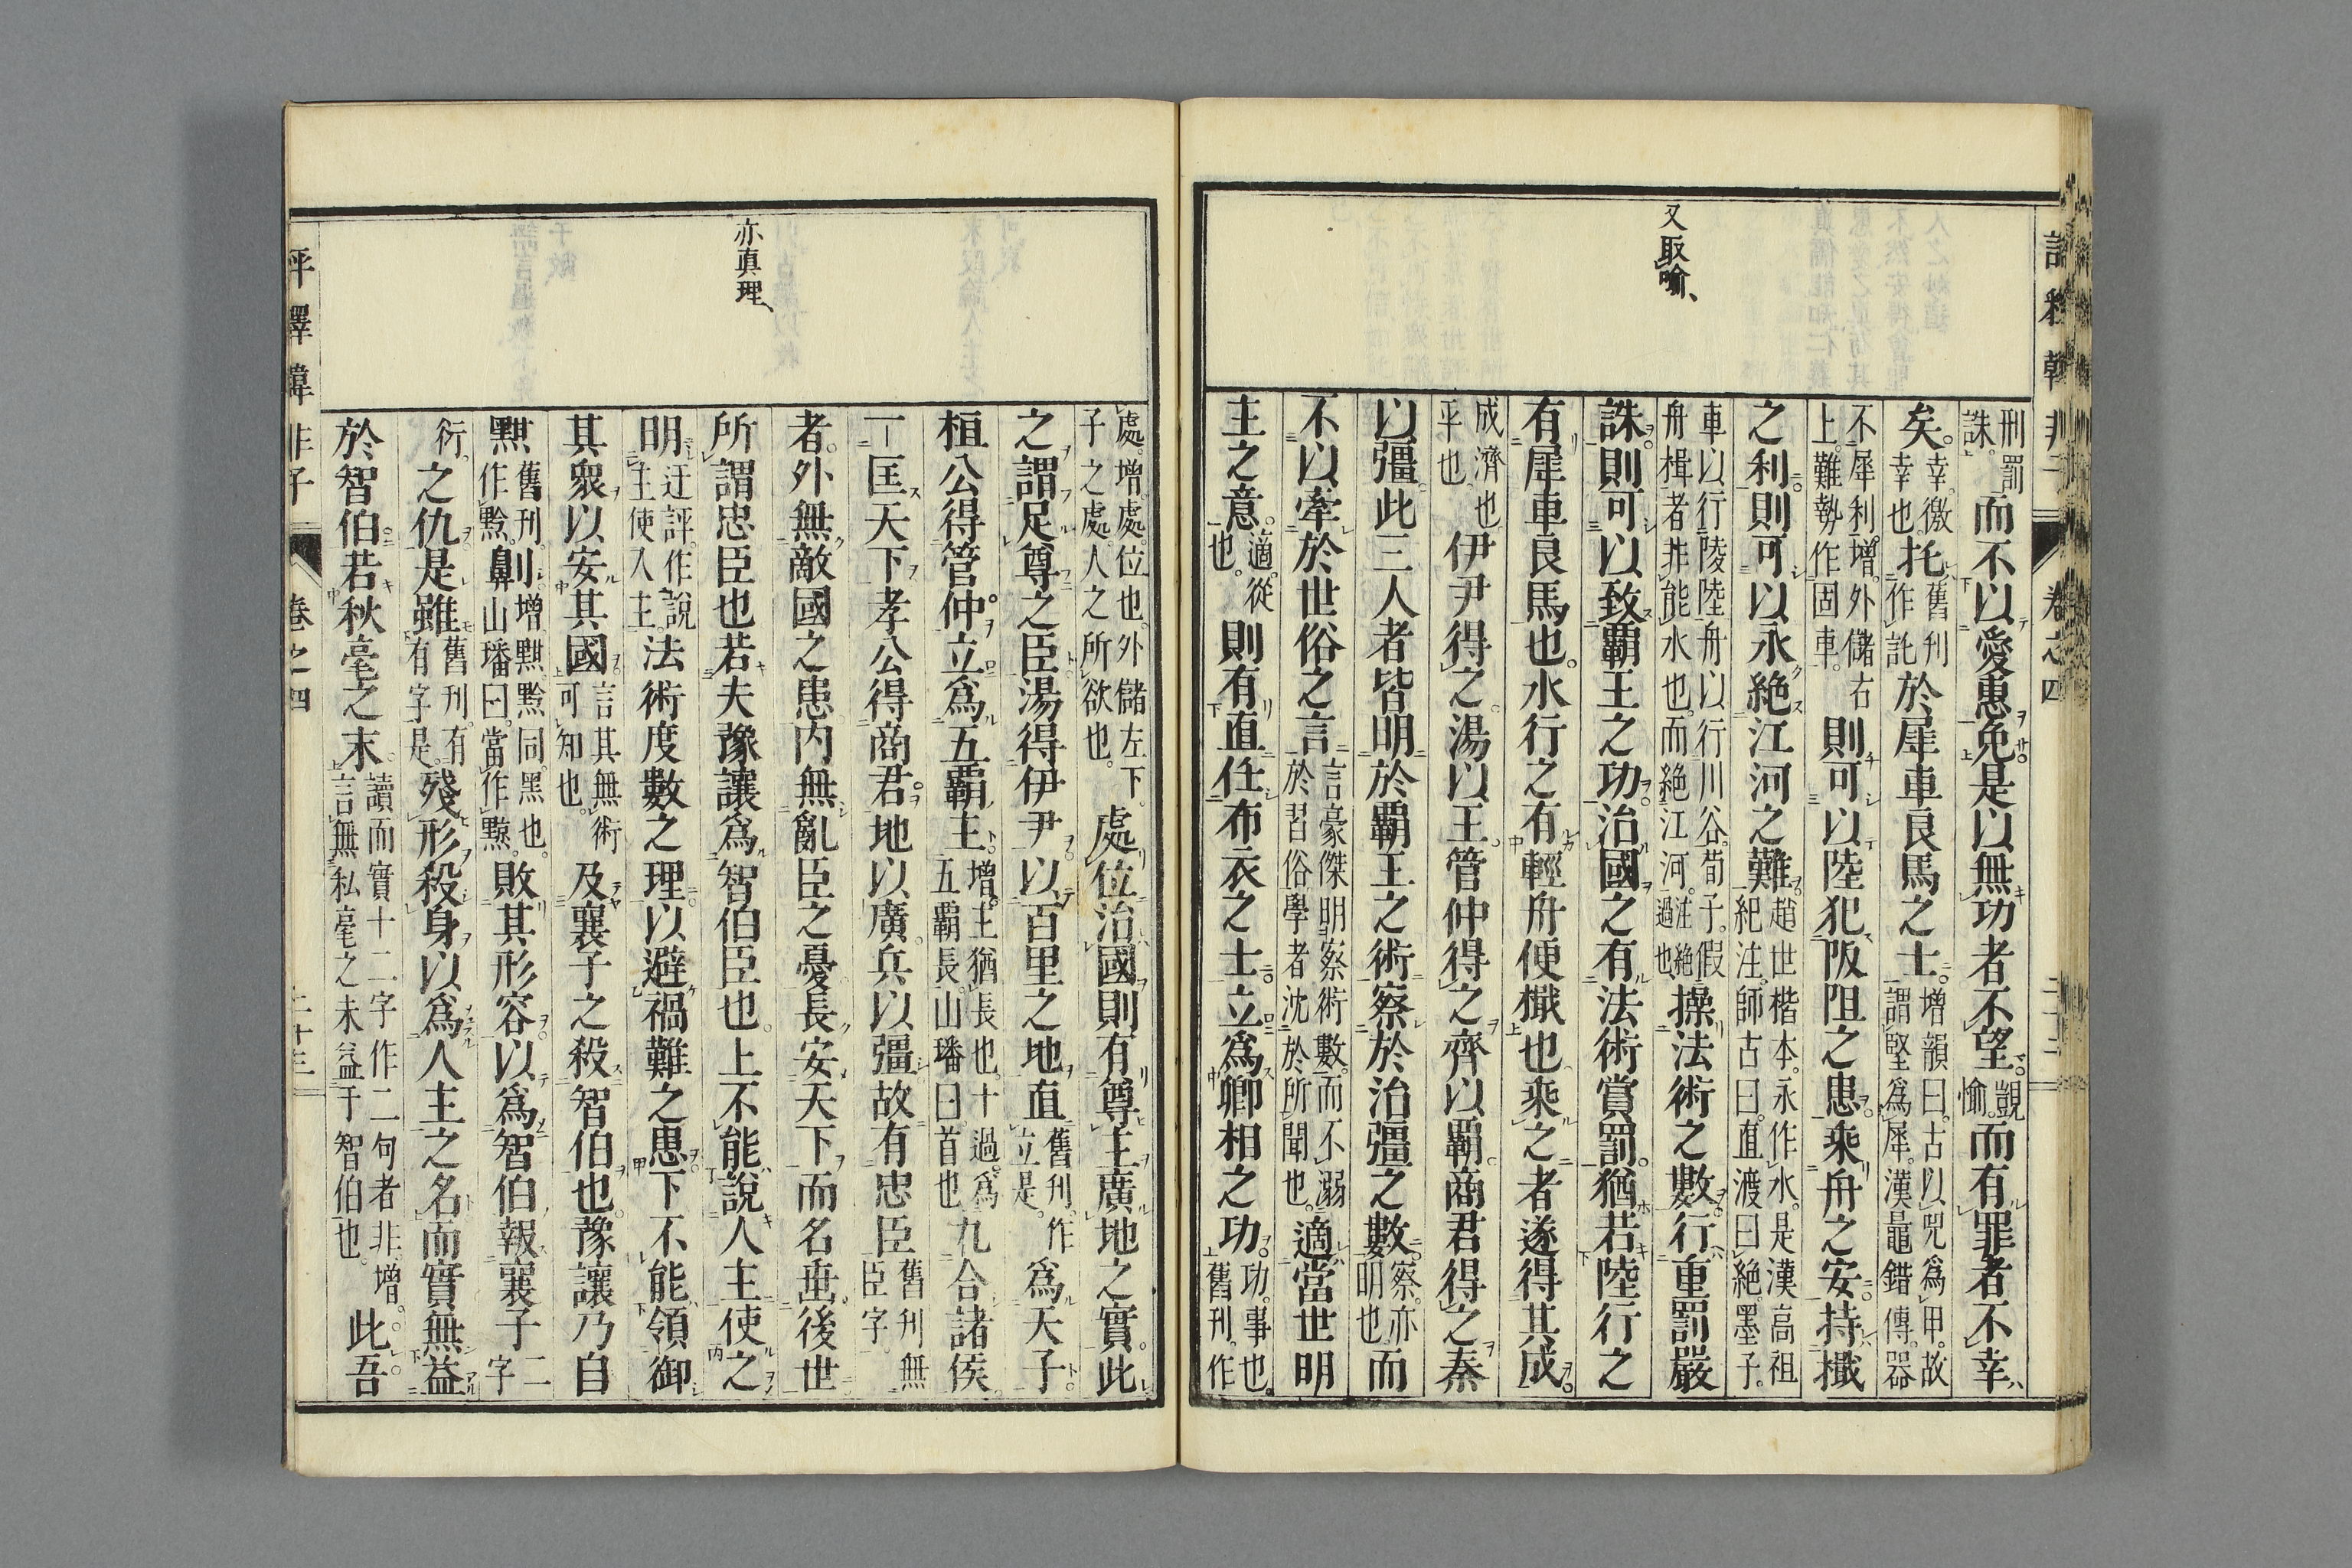 又取喻、
刑罰誅。而不以愛惠免是以無功者不望。覬愉。而有罪者不幸
矣。幸。徼幸也。托舊刊作託於犀車良馬之士。增韻曰。古以兕爲甲。故謂堅爲犀。漢鼂錯傳。器
不犀利。增。外儲右上。難勢作固車。則可以陸犯阪阻之患。乘舟之安。持檝
之利。則可以永絕江河之難。趙世楷本。永作水。是。漢高祖紀注。師古曰。直渡曰絕。墨子。
車以行陵陸。舟以行川谷。荀子。假舟楫者。非能水也。而絕江河。注絕過也操法術之數。行重罰嚴
誅。則可以致覇王之功。治國之有法術賞罰。猶若陸行之
有犀車良馬也。水行之有輕舟便檝也。乘之者遂得其成。
成濟也平也。伊尹得之。湯以王。管仲得之齊以覇。商君得之秦
以彊。此三人者皆明於覇王之術。察於治彊之數。察。亦明也而
不以牽於世俗之言。言豪傑明察術數。而不溺於習俗學者沈於所聞也。適當世明
主之意。適。從也。則有直任布衣之士。立爲卿相之功。功。事也。舊刊。作
評釋韓非子 卷之四
亦真理、
處。增。處。位也。外儲左下。子之處。人之所欲也。處位治國。則有尊主廣地之實。此
之謂足尊之臣。湯得伊尹。以百里之地。直舊刊。作立是。爲天子。
桓公得管仲。立爲五覇主。增。主猶長也。十過。爲五覇長。山璠曰。首也九合諸侯。
一匡天下。孝公得商君。地以廣。兵以彊。故有忠臣舊刊無臣字。
者。外無敵國之患。內無亂臣之憂。長安天下。而名垂後世
所謂忠臣也。若夫豫讓爲智伯臣也。上不能說人主使之
明迂評。作說主使入主。法術度數之理。以避禍難之患。下不能領御
其衆。以安其國。言其無術可知也。及襄子之殺智伯也。豫讓乃自
黥舊刊。作黔。劓增。黥黔同。黑也。山璠曰。當作黥。敗其形容。以爲智伯報襄子二字
衍。之仇。是雖舊刊。有有字是。殘形殺身。以爲人主之名。而實無益
於智伯。若秋毫之末。讀而實十二字作二句者非。增。言無私毫之未益于智伯也。此吾
評釋韓非子 卷之四 二十三